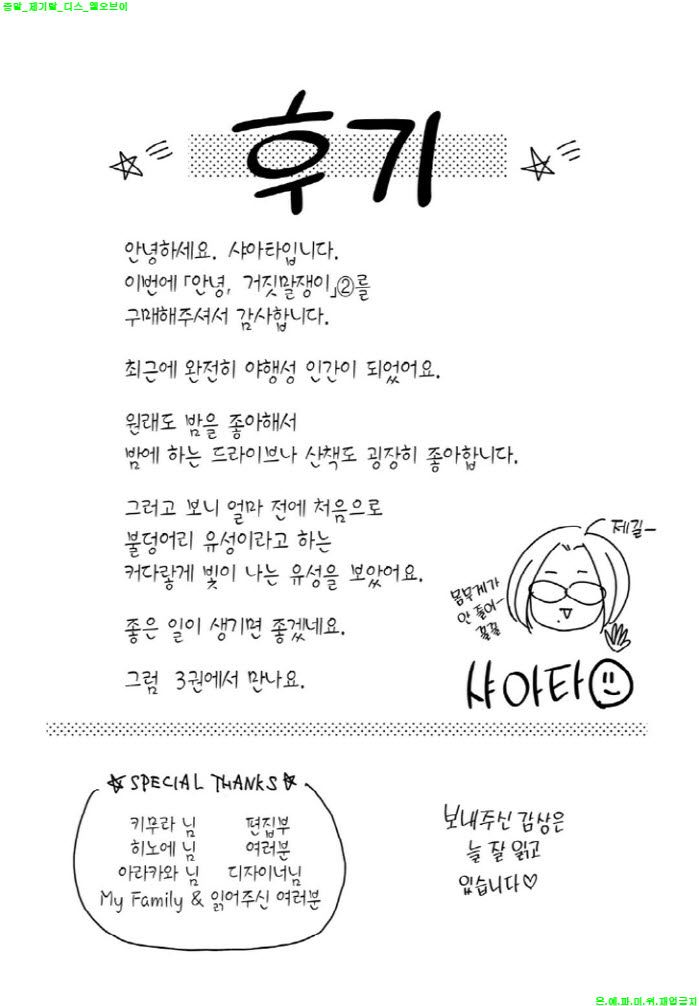 종말_제기랄_디스_엘오브이
후기
안녕하세요. 샤아타입니다.
이번에 「안녕, 거짓말쟁이」②를
구매해주셔서 감사합니다.
최근에 완전히 야행성 인간이 되었어요.
원래도 밤을 좋아해서
밤에 하는 드라이브나 산책도 굉장히 좋아합니다.
그러고 보니 얼마 전에 처음으로
불덩어리 유성이라고 하는
커다랗게 빛이 나는 유성을 보았어요.
좋은 일이 생기면 좋겠네요.
그럼 3권에서 만나요.
제길ㅡ
몸무게가
안 줄어ㅡ
끌끌
샤아타
SPECIAL THANKS
키무라 님 편집부
히노에 님 여러분
아라카와 님 디자이너님
My Family & 읽어주신 여러분
보내주신 감상은
늘 잘 읽고
있습니다♡
은.에.파.마.위.재업금지